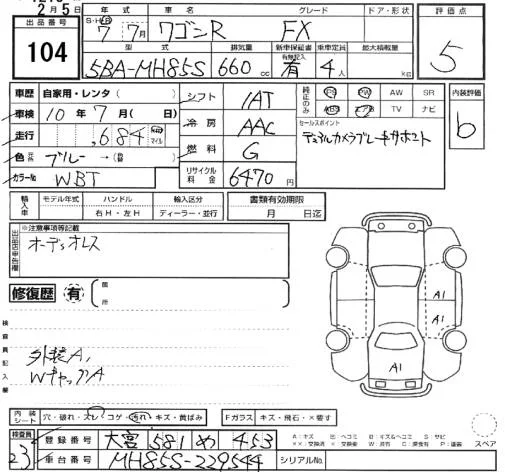 2月5日
出品番号
104
年式
車名
グレード
ドア・形状
評価点
S・H・R
7 7月
ワゴンR
FX
5
型式
排気量
新車保証書
乗車定員
最大積載量
有無記入
5BA-MH85S
660 cc
有
4人
kg
車歴
自家用・レンタ( )
シフト
IAT
純正のみ
PS PW AW SR
ABS エアB TV ナビ
内装評価
6
車検
10年7月( 日)
冷房
AAC
セールスポイント
デュアルカメラブレーキサポート
走行
,684 km マイル
燃料
G
色 元色
ブルー→( )
リサイクル料金
6470円
カラーNo
WBT
輸入車
モデル年式
ハンドル
輸入区分
書類有効期限
右H・左H
ディーラー・並行
月 日迄
出品店申告欄
※注意事項等記載
オーディオレス
修復歴
有
箇所
A1
A1
検査員記入欄
外装A1
WキャップA
内装シート
穴・破れ・スレ・コゲ・汚れ・キズ・黄ばみ
Fガラス
キズ・飛石・×要す
検査員
23
登録番号
大宮 581 め 453
車台番号
MH85S-229544
シリアルNo.
A:キズ U:ヘコミ B:キズ&ヘコミ S:サビ
スペア